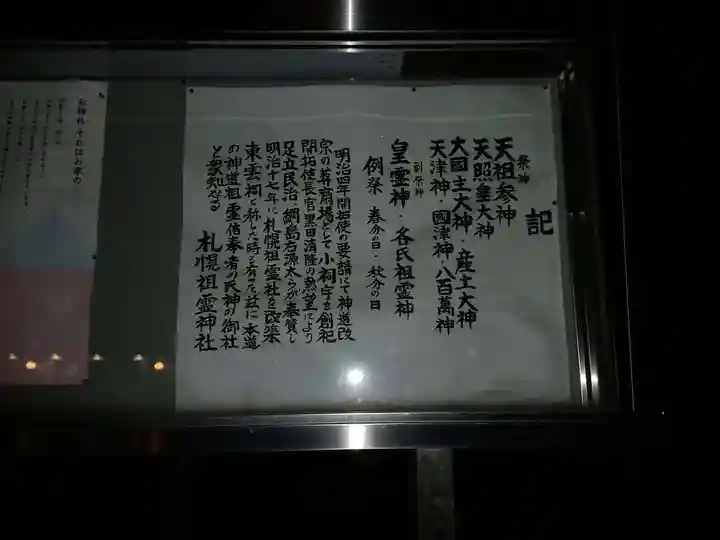 記
祭神
天祖参神
天照皇大神
大国主大神・産土大神
天津神・國津神・八百萬神
副祭神
皇霊神・各氏祖霊神
例祭 春分の日・秋分の日
明治四年開拓使の要請にて神道改
宗の葬齋場として小祠宇を創祀
開拓使長官黒田清隆の熱望により
足立民治・綱島右源太らが奉賛し
明治十七年に札幌祖霊社を改築
東雲祠と称した時を有った社に本道
の神道祖霊信奉者の氏神の御社
と
札幌祖霊神社